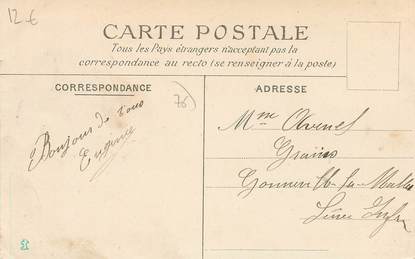 12 €
CARTE POSTALE
Tous les Pays étrangers n'acceptant pas la
correspondance au recto (se renseigner à la poste)
CORRESPONDANCE
ADRESSE
76
Bonjour de tous
Eugène
Mme
Grains
Gonneville-la-Mallet
Seine Infre